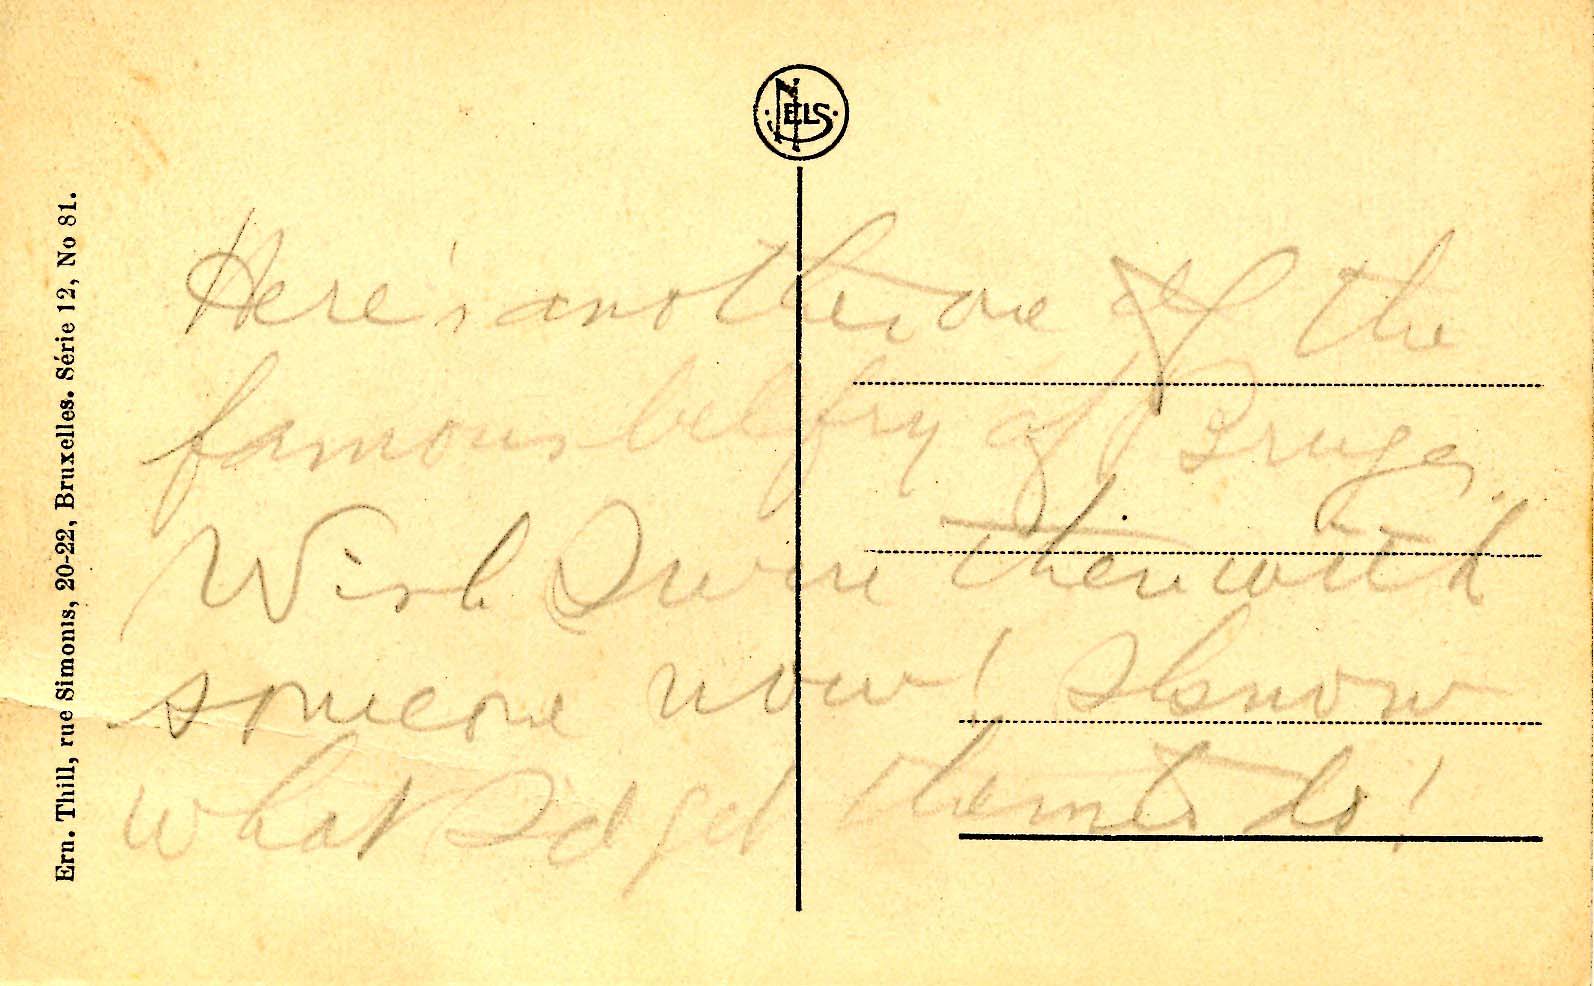 NELS
Ern. Thill, rue Simonis, 20-22, Bruxelles. Série 12, No 81.
Here's another one of the
famous belfry of Bruges.
Wish I were there with
someone now! I know
what I'd get them to do!